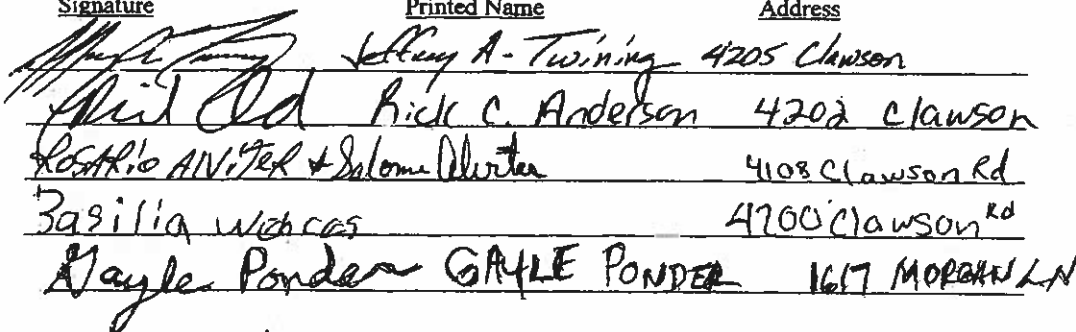 Signature Printed Name Address
Jeffrey A - Twining 4205 Clawson
Rick C. Anderson 4202 Clawson
ROSARIO & Salome 4108 Clawson Rd
Basilia 4200 Clawson Rd
Gayle Ponder GAYLE PONDER 1617 MORGAN LN